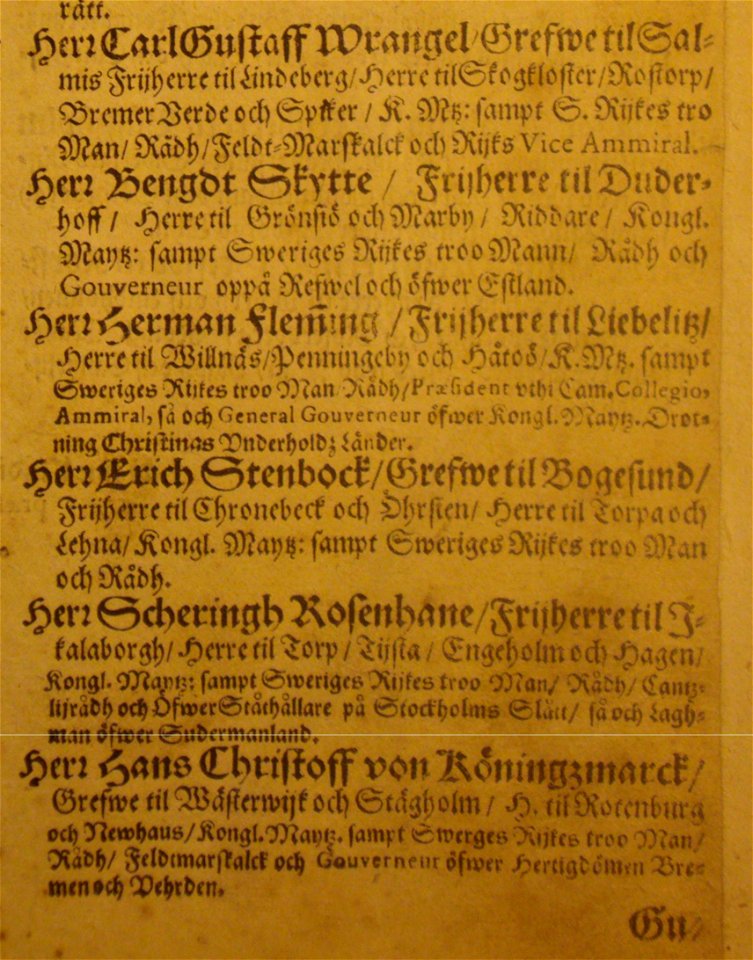 rätt.
Herr Carl Gustaff Wrangel/ Grefwe til Sal-
mis Frijherre til Lindeberg/ Herre til Skogkloster/ Rostorp/
Bremer Verde och Spker / K. Mtz: sampt S. Rijkes tro
Man/ Rådh/ Feldt-Marskalck och Rijks Vice Ammiral.
Herr Bengdt Skytte / Frijherre til Duder-
hoff/ Herre til Grönsiö och Marby/ Riddare/ Kongl.
Maytz: sampt Sweriges Rijkes troo Mann/ Rådh och
Gouverneur oppå Refwel och öfwer Estland.
Herr Herman Flem̃ing /Frijherre til Liebelitz/
Herre til Willnäs/Penningeby och Håtoö/K. Mtz. sampt
Sweriges Rijkes troo Man/ Rådh/ Præsident vthi Cam. Collegio,
Ammiral, så och General Gouverneur öfwer Kongl. Maytz. Drot-
ning Christinas Vnderholdz Länder.
Herr Erich Stenbock/Grefwe til Bogesund/
Frijherre til Chronebeck och Öhrsten/ Herre til Torpa och
Lehna/ Kongl. Maytz: sampt Sweriges Rijkes troo Man
och Rådh.
Herr Scheringh Rosenhane/Frijherre til J-
kalaborgh/ Herre til Torp/ Tijsta/ Engeholm och Hagen/
Kongl. Maytz: sampt Sweriges Rijkes troo Man/ Rådh/ Cantz-
lijrådh och Öfwer Ståthållare på Stockholms Slått/ så och Lagh-
man öfwer Sudermanland.
Herr Hans Christoff von Köningzmarck/
Grefwe til Wästerwijk och Stägholm/ H. til Rotenburg
och Newhaus/ Kongl. Maytz. sampt Swerges Rijkes troo Man/
Rådh/ Feldtmarskalck och Gouverneur öfwer Hertigdömen Bre-
men och Vehrden.
Gu-